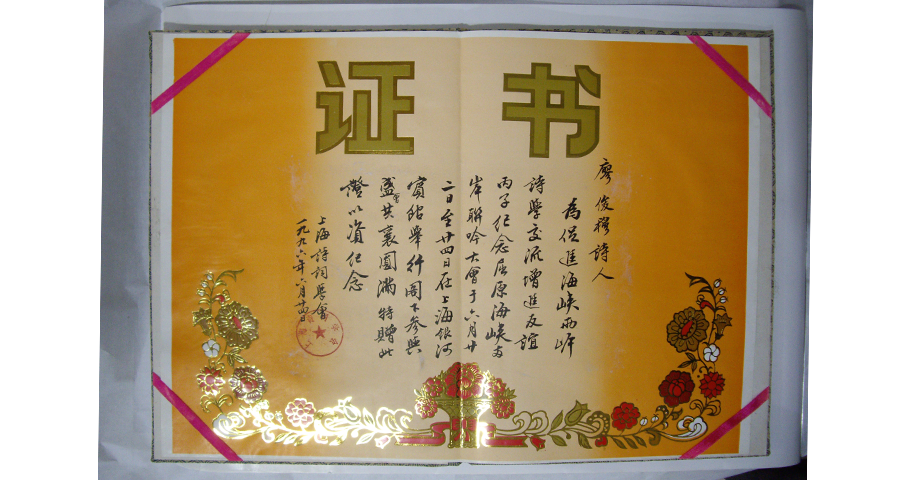 证书
廖俊穆詩人
為促進海峽兩岸
詩學交流增進友誼
丙子纪念屈原海峽两
岸聯吟大會于六月廿
二日至廿四日在上海银河
賓館舉行閣下參與
盛會共襄圓滿特贈此
證以资纪念
上海詩詞學會
一九九六年六月廿四日